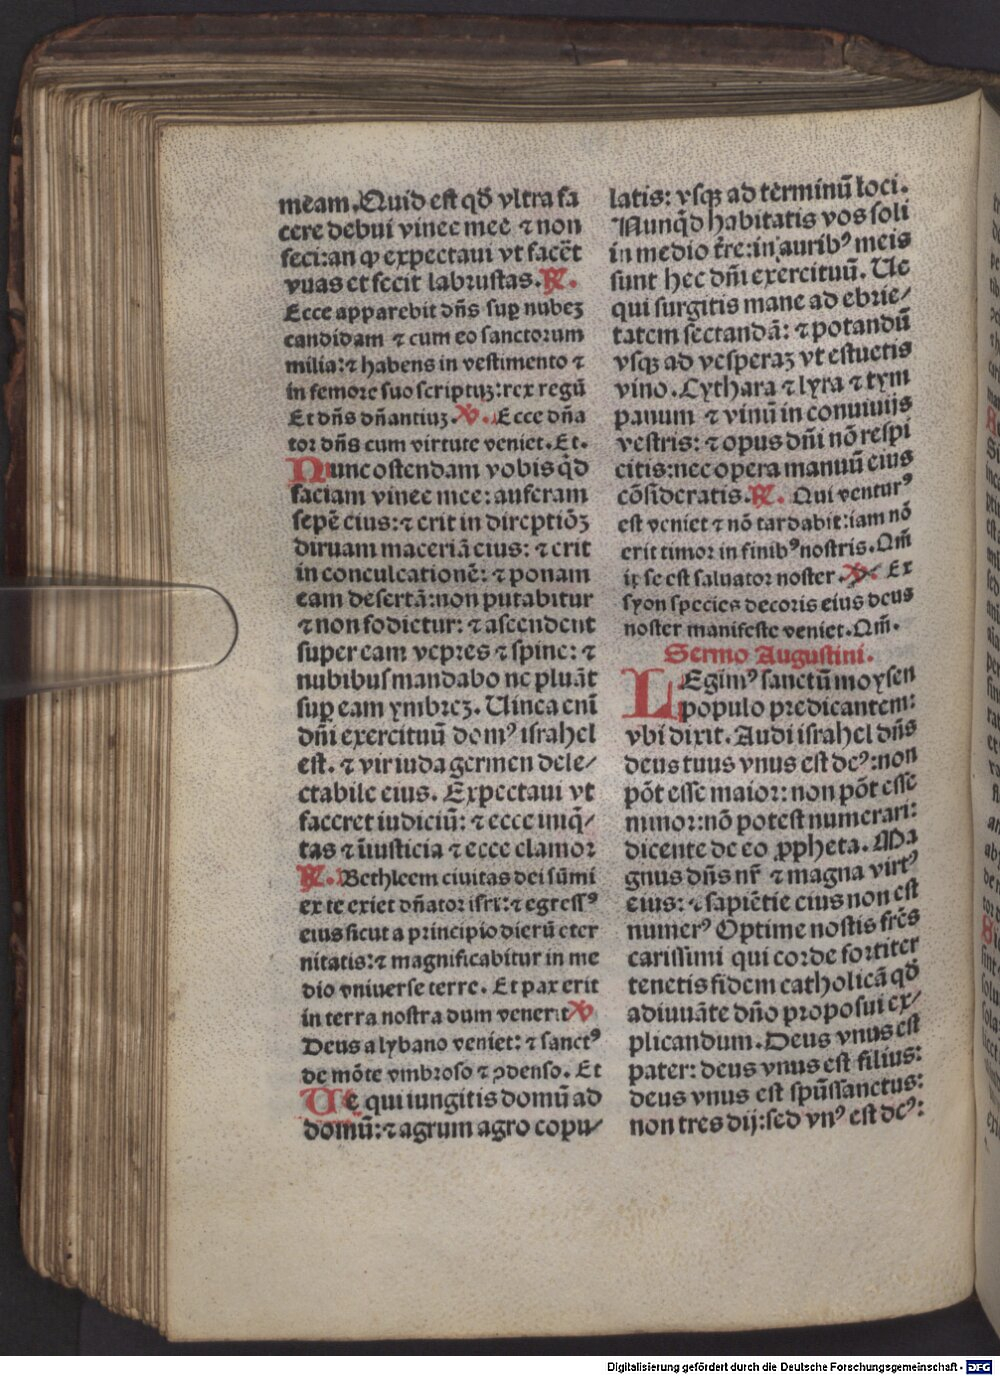 meam. Quid est qđ vltra fa
cere debui vinee mee ⁊ non
feci: an ꝙ expectaui vt facēt
vuas et fecit labrustas. ℟.
Ecce apparebit dn̄s suꝑ nubeꝫ
candidam ⁊ cum eo sanctorum
milia: ⁊ habens in vestimento ⁊
in femore suo scriptuꝫ: rex regū
Et dn̄s dn̄antiuꝫ. ℣. Ecce dn̄a
tor dn̄s cum virtute veniet. Et.
Nunc ostendam vobis qͥd
faciam vinee mee: auferam
sepē eius: ⁊ erit in direptiōꝫ
diruam maceriā eius: ⁊ erit
in conculcationē: ⁊ ponam
eam desertā: non putabitur
⁊ non fodietur: ⁊ ascendent
super eam vepres ⁊ spine: ⁊
nubibus mandabo ne pluāt
suꝑ eam ymbreꝫ. Uinea eni̅
dn̄i exercituū domꝰ israhel
est. ⁊ vir iuda germen dele/
ctabile eius. Expectaui vt
faceret iudiciū: ⁊ ecce iniqͥ/
tas ⁊ iiusticia ⁊ ecce clamor
℟. Bethleem ciuitas dei sūmi
ex te exiet dn̄ator isrl: ⁊ egressꝰ
eius sicut a principio dierū eter
nitatis: ⁊ magnificabitur in me
dio vniuerse terre. Et pax erit
in terra nostra dum venerit ℣
Deus a lybano veniet: ⁊ sanctꝰ
de mōte vmbroso ⁊ ꝯdenso. Et
Ue qui iungitis domū ad
domū: ⁊ agrum agro copu/
latis: vsqꝫ ad terminū loci.
Nunqͥd habitatis vos soli
in medio tr̄e: in auribꝰ meis
sunt hec dn̄i exercituū. Ue
qui surgitis mane ad ebrie/
tatem sectandā: ⁊ potandū
vsqꝫ ad vesperaꝫ vt estuetis
vino. Cythara ⁊ lyra ⁊ tym
panum ⁊ vinū in conuiuijs
vestris: ⁊ opus dn̄i nō respi
citis: nec opera manuū eius
cōsideratis. ℟. Qui venturꝰ
est veniet ⁊ nō tardabit: iam nō
erit timor in finibꝰ nostris. Qm̄
ip̄se est saluator noster. ℣. Ex
syon species decoris eius deus
noster manifeste veniet. Qm̄.
Sermo Augustini.
LEgimꝰ sanctū moysen
populo predicantem:
vbi dixit. Audi israhel dn̄s
deus tuus vnus est deꝰ: non
pōt esse maior: non pōt esse
minor: nō potest numerari:
dicente de eo ꝓpheta. Ma
gnus dn̄s nr̄ ⁊ magna virtꝰ
eius: ⁊ sapiētie eius non est
numerꝰ Optime nostis frēs
carissimi qui corde fortiter
tenetis fidem catholicā qđ
adiuuāte dn̄o proposui ex/
plicandum. Deus vnus est
pater: deus vnus est filius:
deus vnus est spūssanctus:
non tres dij: sed vnꝰ est deꝰ:
Digitalisierung gefördert durch die Deutsche Forschungsgemeinschaft - DFG